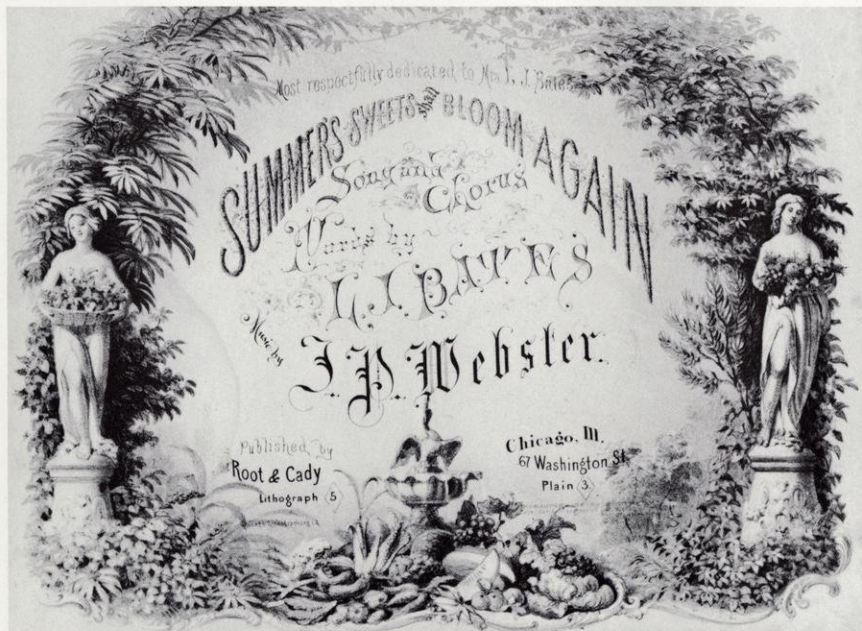 Most respectfully dedicated to Mrs. L. J. Bates
SUMMERS SWEETS shall BLOOM AGAIN
Song and
Chorus
Words by
L.J. BATES
Music by
J.P. Webster.
Published by
Root & Cady
Lithograph 5
Chicago, Ill.
67 Washington St.
Plain 3.